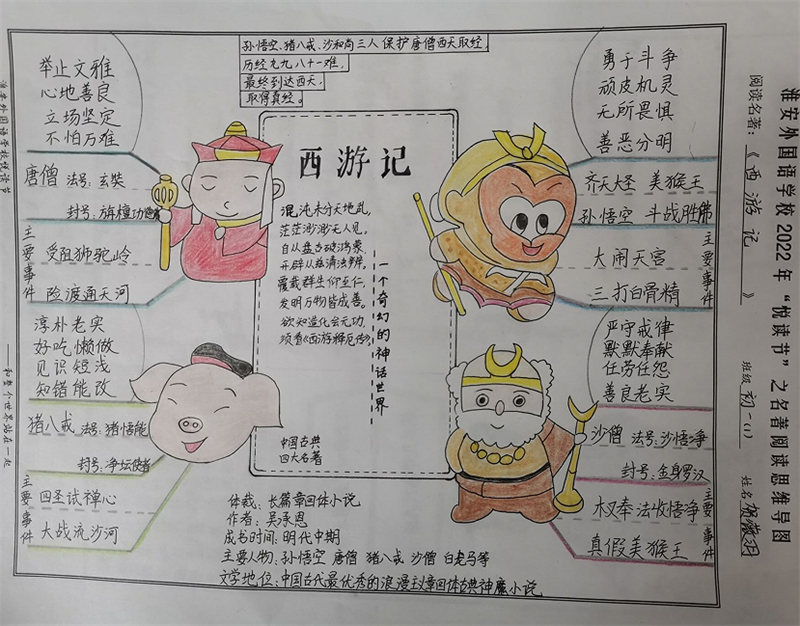 孙悟空、猪八戒、沙和尚三人保护唐僧西天取经,
历经九九八十一难,
最终到达西天,
取得真经。
举止文雅
心地善良
立场坚定
不怕万难
唐僧 法号:玄奘
封号:旃檀功德佛
主要事件
受阻狮驼岭
险渡通天河
淳朴老实
好吃懒做
见识短浅
知错能改
猪八戒 法号:猪悟能
封号:净坛使者
主要事件
四圣试禅心
大战流沙河
西游记
混沌未分天地乱,
茫茫渺渺无人见。
自从盘古破鸿蒙,
开辟从兹清浊辨。
覆载群生仰至仁,
发明万物皆成善。
欲知造化会元功,
须看《西游释厄传》
一个奇幻的神话世界
中国古典
四大名著
体裁:长篇章回体小说
作者:吴承恩
成书时间:明代中期
主要人物:孙悟空 唐僧 猪八戒 沙僧 白龙马等
文学地位:中国古代最优秀的浪漫主义章回体古典神魔小说
勇于斗争
顽皮机灵
无所畏惧
善恶分明
齐天大圣 美猴王
孙悟空 斗战胜佛
主要事件
大闹天宫
三打白骨精
严守戒律
默默奉献
任劳任怨
善良老实
沙僧 法号:沙悟净
封号:金身罗汉
主要事件
木叉奉法收悟净
真假美猴王
淮安外国语学校2022年“悦读节”之名著阅读思维导图
阅读名著:《西游记》
班级 初一(1)
姓名
淮安外国语学校悦读节
——和整个世界站在一起